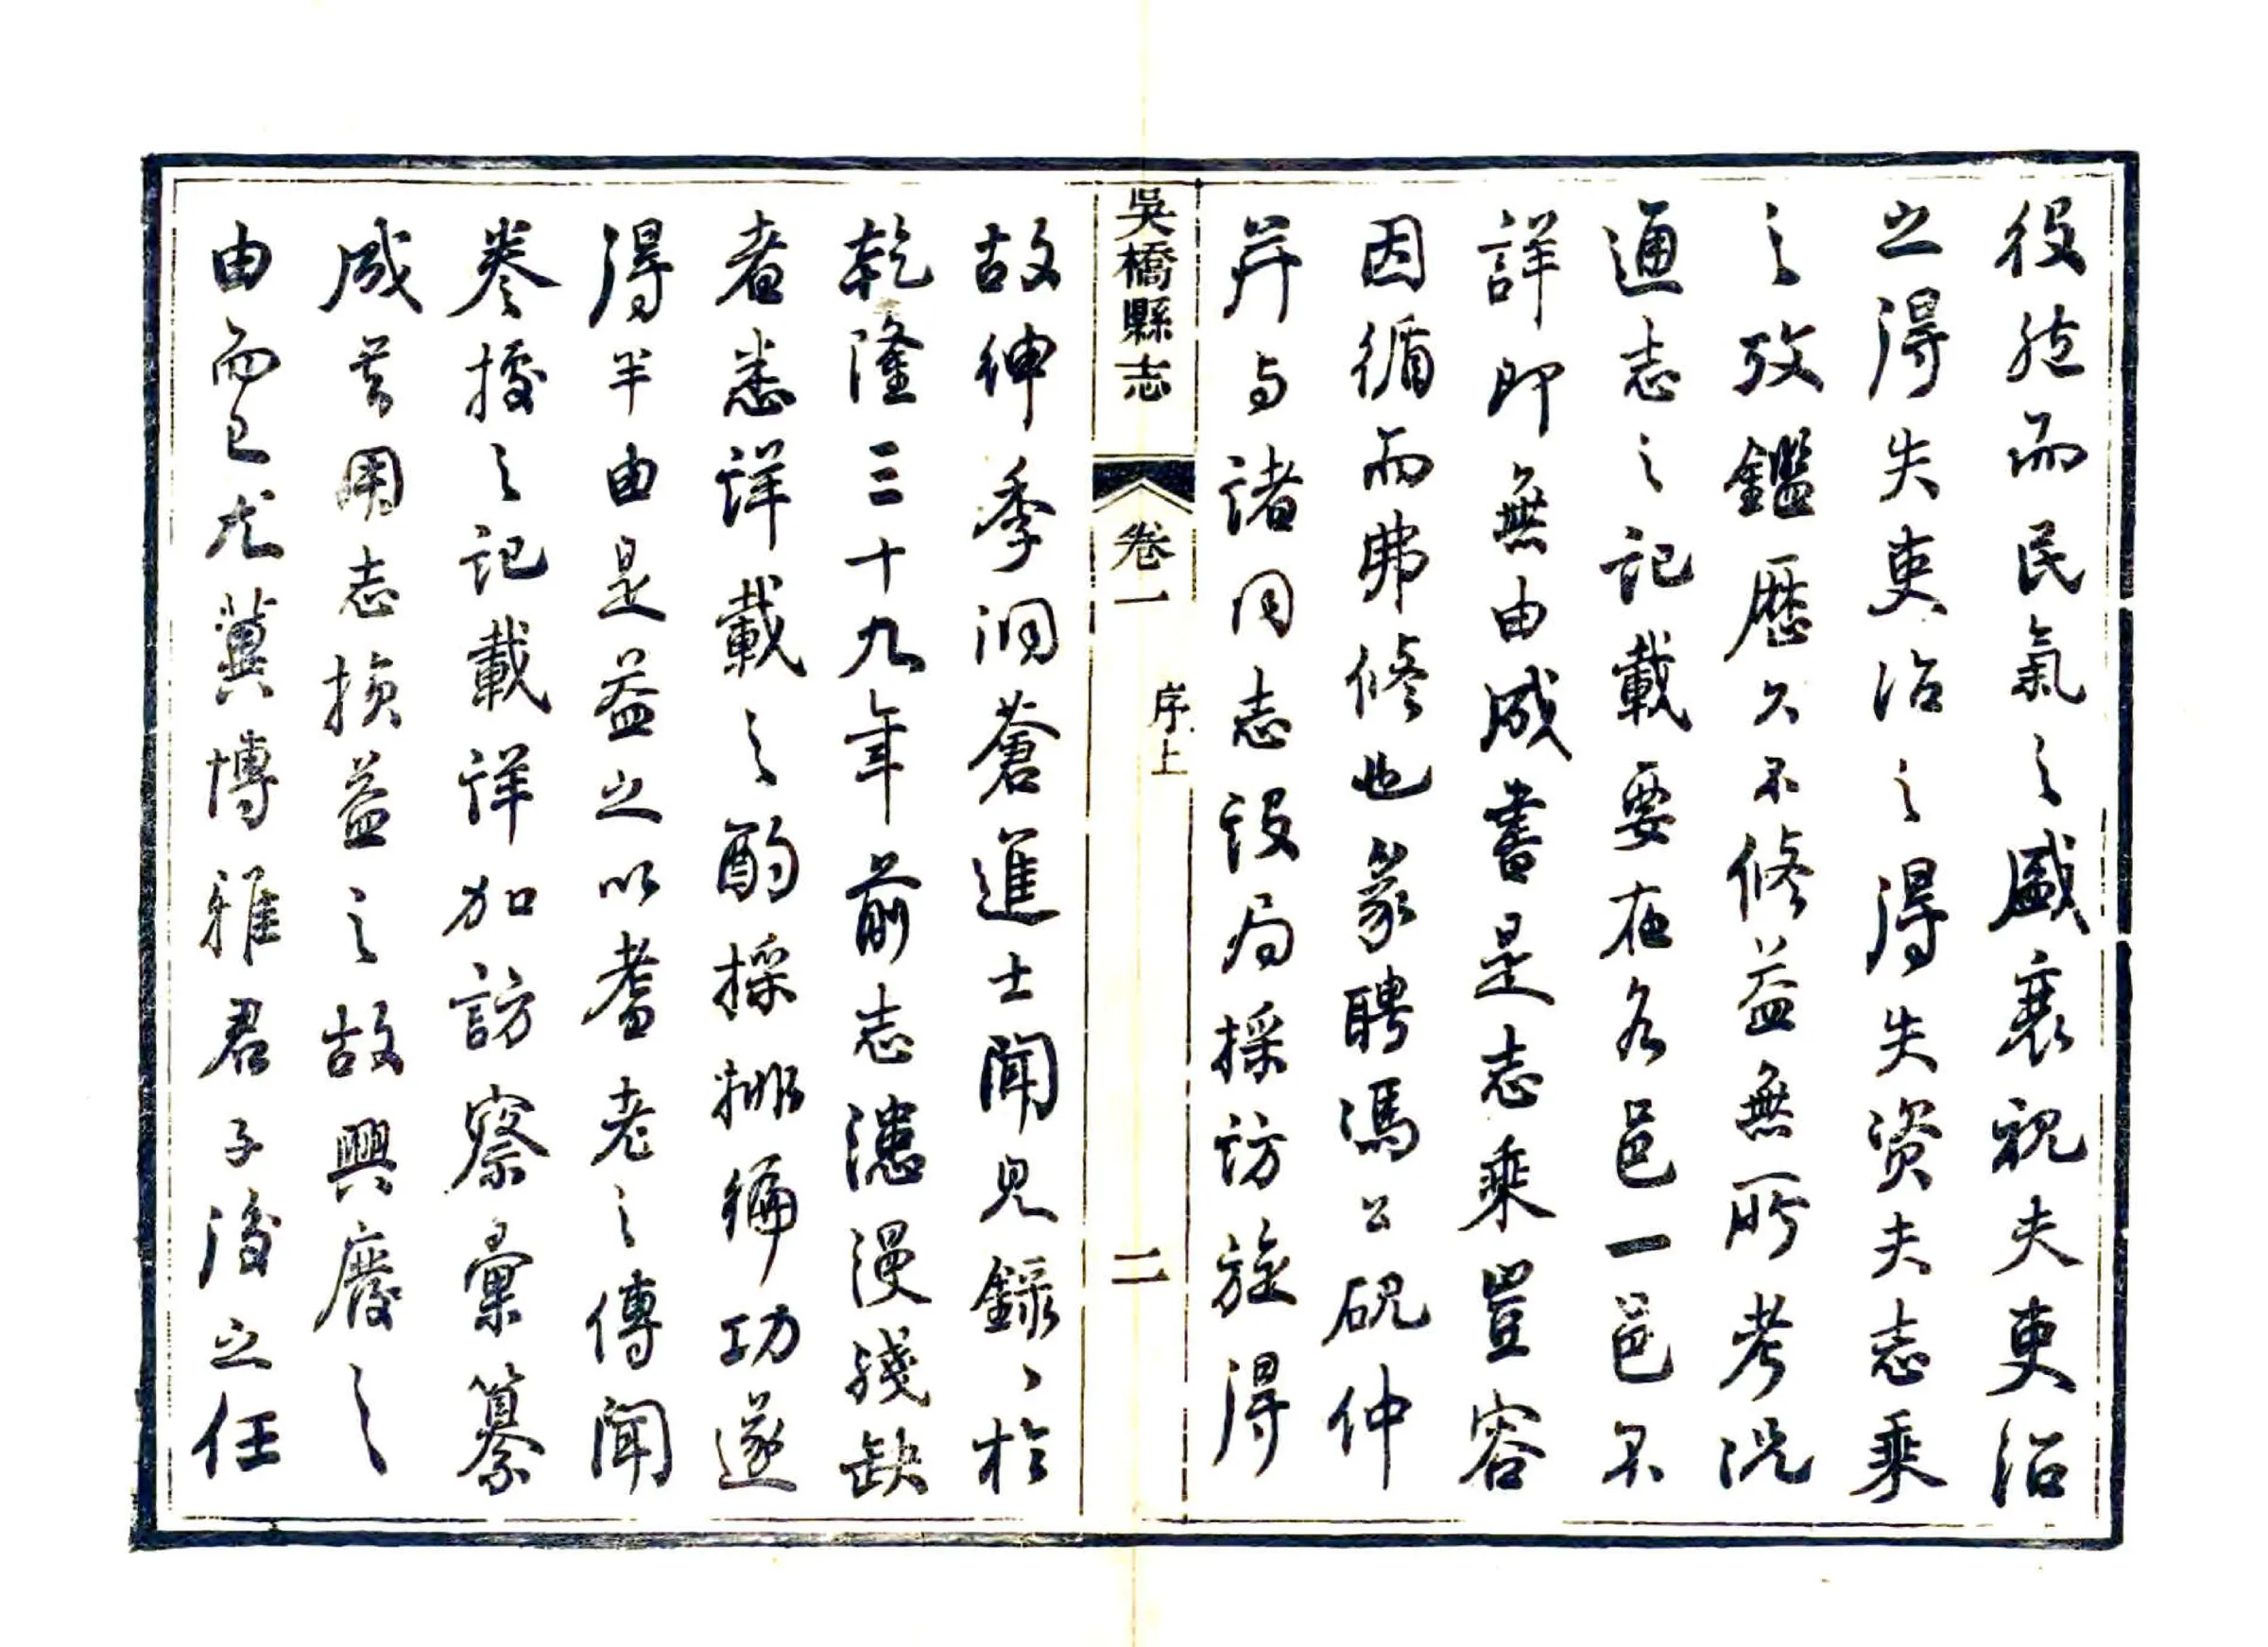 役然而民氣之盛衰視夫吏治
之得失吏治之得失資夫志乘
之攷鑑歷久不修益無所考況
通志之記載要在各邑一邑不
詳即無由成書是志乘豈容
因循而弗修也爰聘馮公硯仲
并与諸同志設局採訪旋得
吳橋縣志 卷一 序上 二
故紳季洞蒼進士聞見錄、於
乾隆三十九年前志漶漫殘缺
者悉詳載之酌採排編功遂
得半由是益之以耆老之傳聞
卷掾之記載詳加訪察彙纂
成书用志損益之故興廢之
由而已尤冀博雅君子後之任